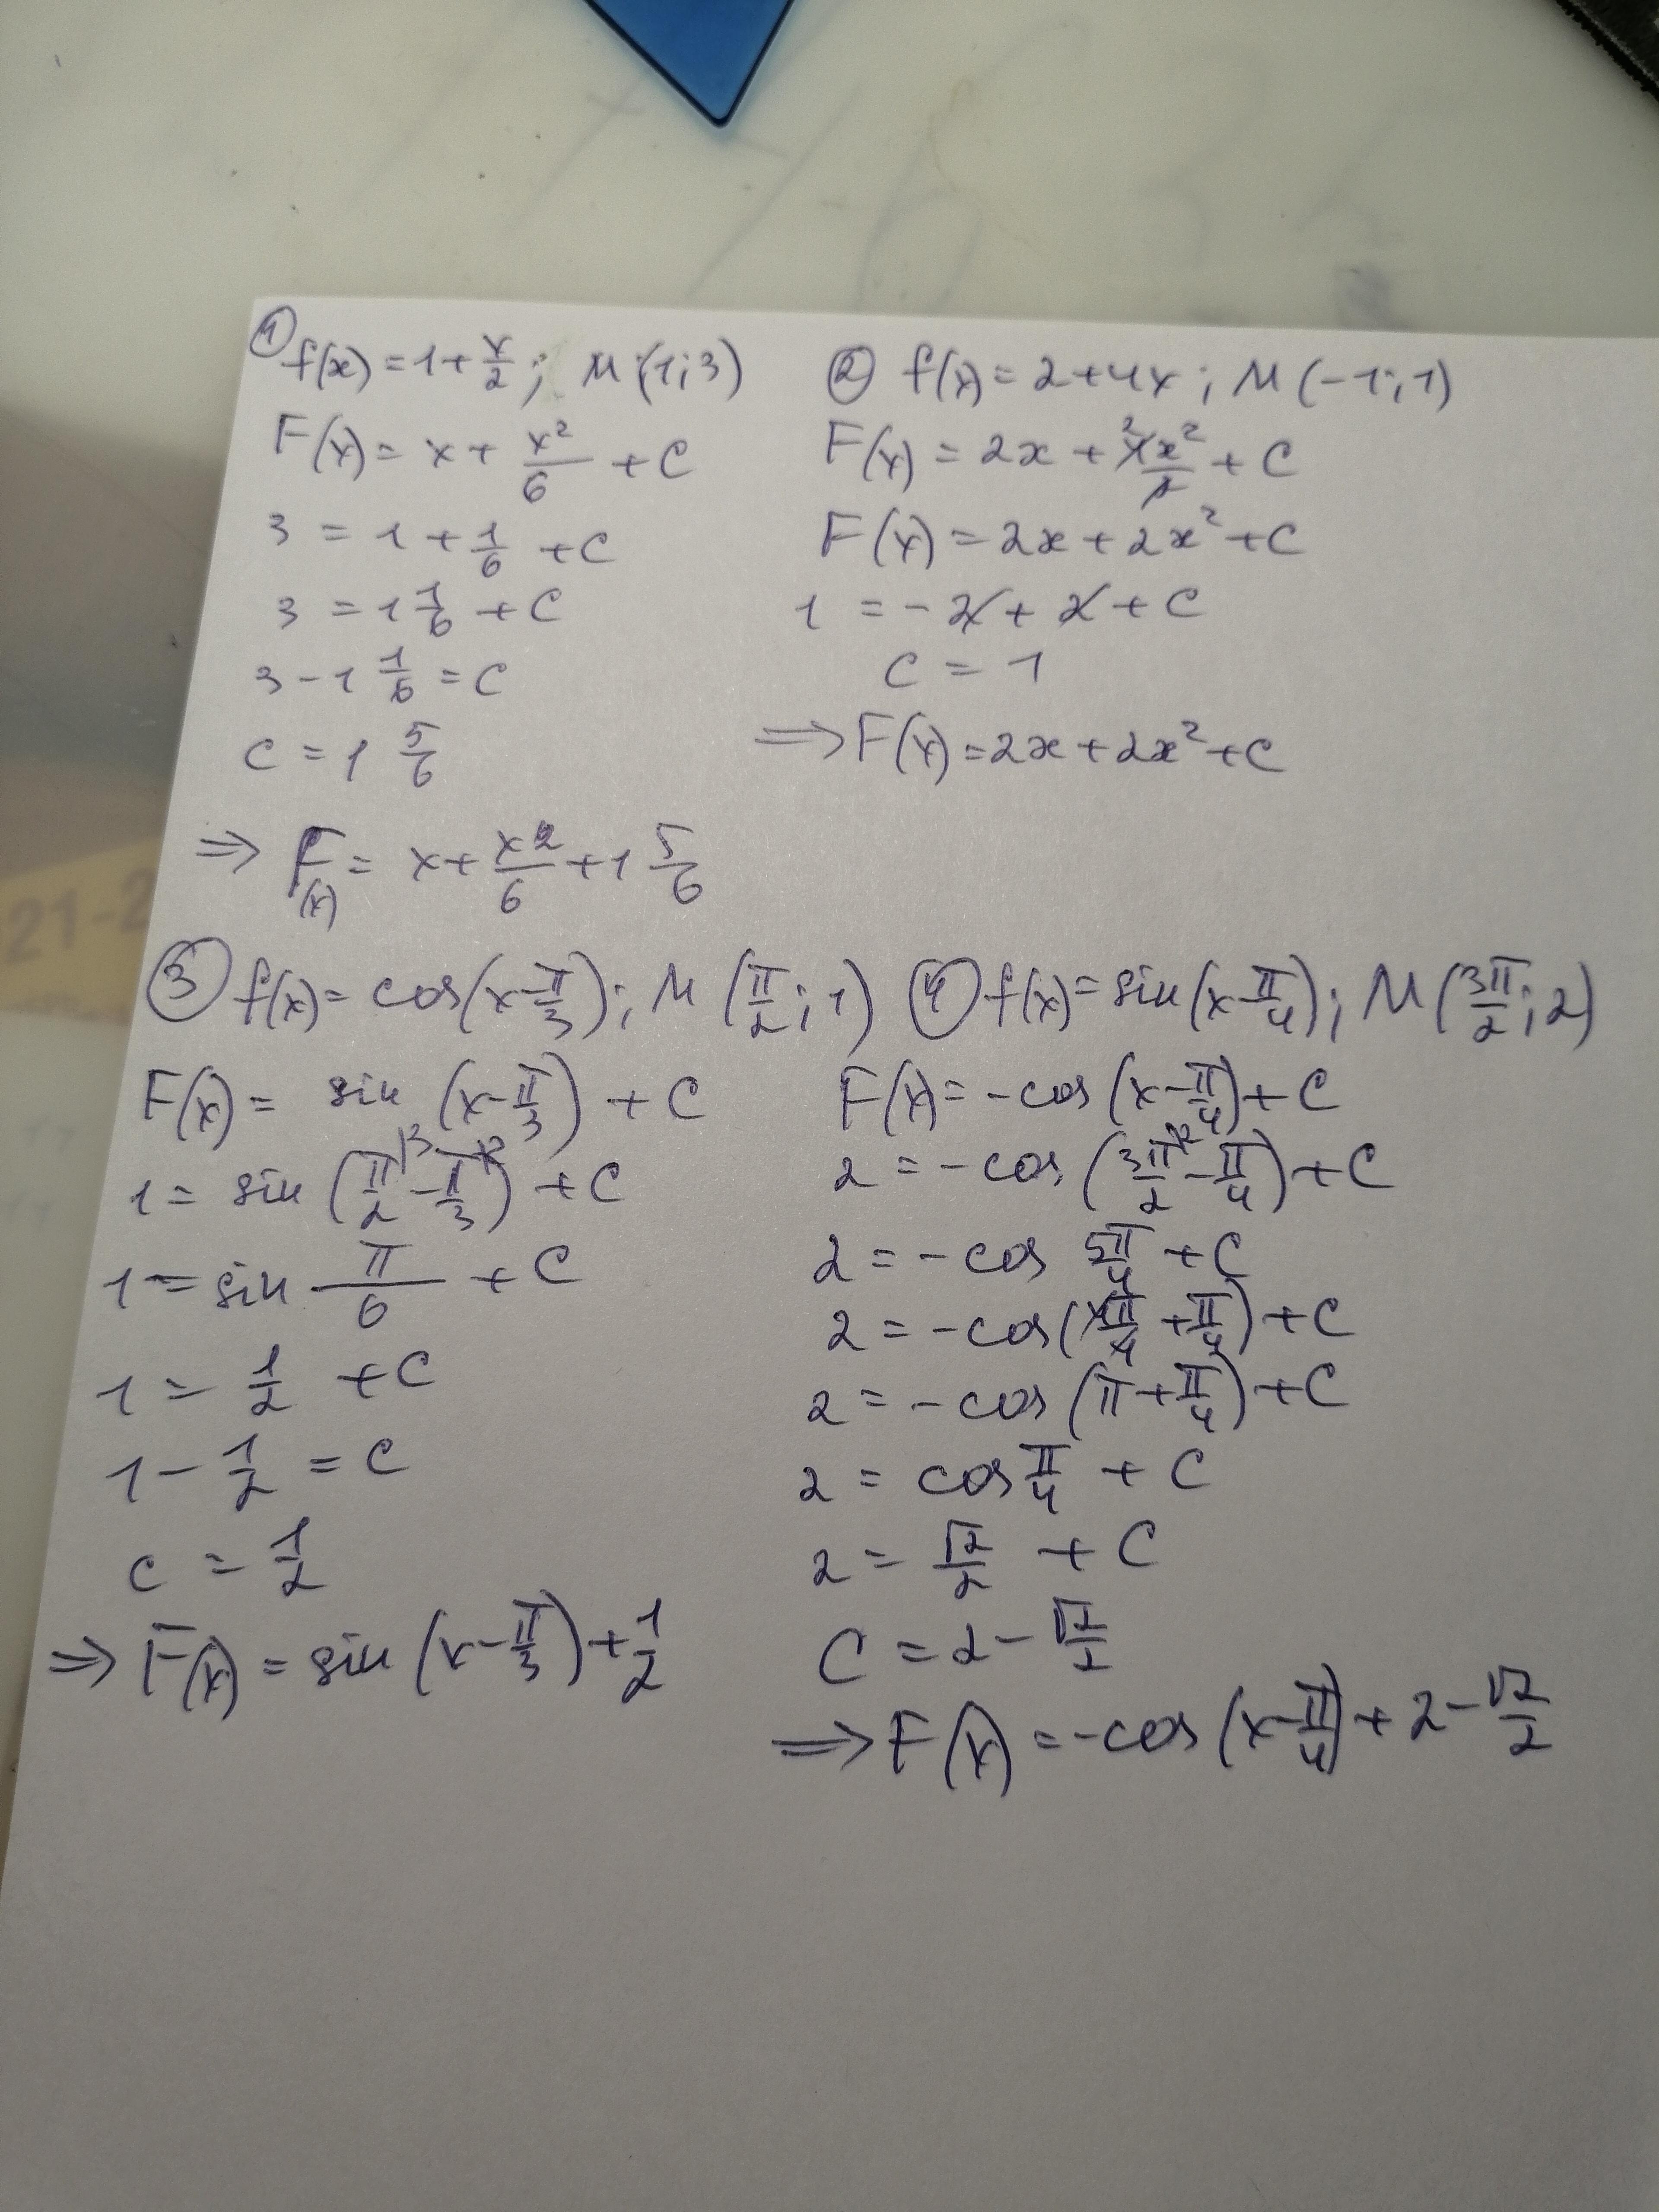 ① f(x) = 1 + x/2; M(1; 3)
F(x) = x + x²/6 + C
3 = 1 + 1/6 + C
3 = 1 1/6 + C
3 - 1 1/6 = C
C = 1 5/6
⇒ F(x) = x + x²/6 + 1 5/6
② f(x) = 2 + 4x; M(-1; 1)
F(x) = 2x + 4x²/2 + C
F(x) = 2x + 2x² + C
1 = -2 + 2 + C
C = 1
⇒ F(x) = 2x + 2x² + C
③ f(x) = cos(x - π/3); M(π/2; 1)
F(x) = sin(x - π/3) + C
1 = sin(π/2 - π/3) + C
1 = sin π/6 + C
1 = 1/2 + C
1 - 1/2 = C
C = 1/2
⇒ F(x) = sin(x - π/3) + 1/2
④ f(x) = sin(x - π/4); M(3π/2; 2)
F(x) = -cos(x - π/4) + C
2 = -cos(3π/2 - π/4) + C
2 = -cos 5π/4 + C
2 = -cos(4π/4 + π/4) + C
2 = -cos(π + π/4) + C
2 = cos π/4 + C
2 = √2/2 + C
C = 2 - √2/2
⇒ F(x) = -cos(x - π/4) + 2 - √2/2
21-2